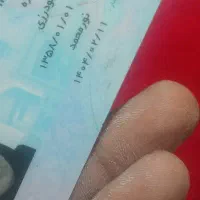 ودرزی
۱۳۵۸/۰۱/۰۱
نورمحمد
۱۴۰۳/۰۲/۱۱